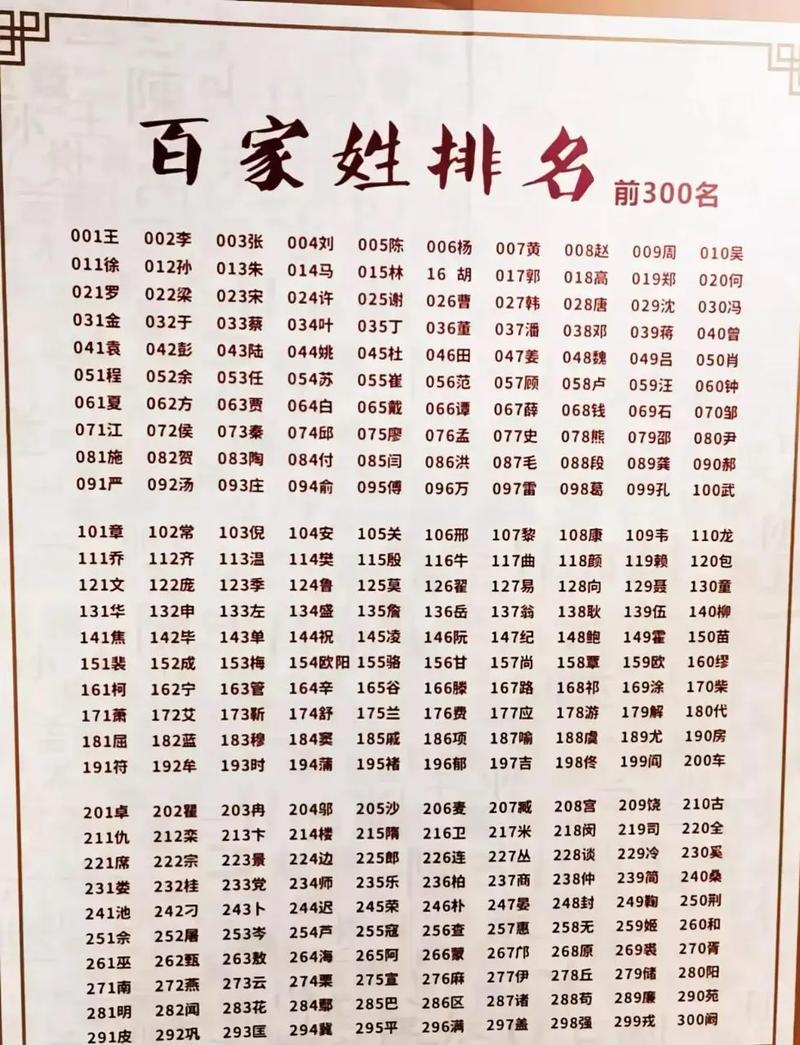 百家姓排名 前300名
001王 002李 003张 004刘 005陈 006杨 007黄 008赵 009周 010吴
011徐 012孙 013朱 014马 015林 16 胡 017郭 018高 019郑 020何
021罗 022梁 023宋 024许 025谢 026曹 027韩 028唐 029沈 030冯
031金 032于 033蔡 034叶 035丁 036董 037潘 038邓 039蒋 040曾
041袁 042彭 043陆 044姚 045杜 046田 047姜 048魏 049吕 050肖
051程 052余 053任 054苏 055崔 056范 057顾 058卢 059汪 060钟
061夏 062方 063贾 064白 065戴 066谭 067薛 068钱 069石 070邹
071江 072侯 073秦 074邱 075廖 076孟 077史 078熊 079邵 080尹
081施 082贺 083陶 084付 085闫 086洪 087毛 088段 089龚 090郝
091严 092汤 093庄 094俞 095傅 096万 097雷 098葛 099孔 100武
101章 102常 103倪 104安 105关 106邢 107黎 108康 109韦 110龙
111乔 112齐 113温 114樊 115殷 116牛 117曲 118颜 119赖 120包
121文 122庞 123季 124鲁 125莫 126翟 127易 128向 129聂 130童
131华 132申 133左 134盛 135詹 136岳 137翁 138耿 139伍 140柳
141焦 142毕 143单 144祝 145凌 146阮 147纪 148鲍 149霍 150苗
151裴 152成 153梅 154欧阳 155骆 156甘 157尚 158覃 159欧 160缪
161柯 162宁 163管 164辛 165谷 166滕 167路 168祁 169涂 170柴
171萧 172艾 173靳 174舒 175兰 176费 177应 178游 179解 180代
181屈 182蓝 183穆 184窦 185戚 186项 187喻 188虞 189尤 190房
191符 192牟 193时 194蒲 195褚 196郁 197吉 198佟 199阎 200车
201卓 202瞿 203冉 204邬 205沙 206麦 207臧 208宫 209饶 210古
211仇 212栾 213卞 214楼 215隋 216卫 217米 218闵 219司 220全
221席 222宗 223景 224边 225郎 226连 227丛 228谈 229冷 230奚
231娄 232桂 233党 234师 235乐 236柏 237商 238仲 239简 240桑
241池 242刁 243卜 244迟 245荣 246朴 247晏 248封 249鞠 250荆
251佘 252屠 253岑 254芦 255寇 256查 257惠 258无 259姬 260和
261巫 262甄 263敖 264海 265阿 266蒙 267邝 268原 269裘 270胥
271南 272燕 273云 274栗 275宣 276麻 277伊 278丘 279储 280阳
281明 282闻 283花 284鄢 285巴 286区 287诸 288苟 289廉 290苑
291皮 292巩 293匡 294冀 295平 296满 297盖 298强 299戎 300阚